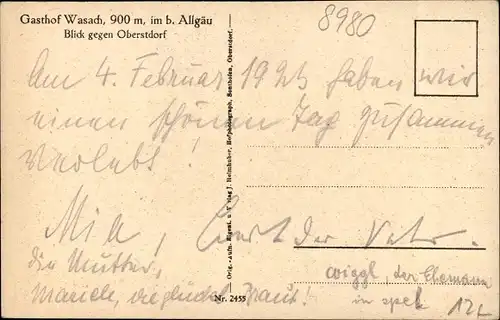 Gasthof Wasach, 900 m, im b. Allgäu
Blick gegen Oberstdorf
8980
Am 4. Februar 1925 haben wir
einen schönen Tag zusammen
verlebt!
Orig.-Aufn. Eigent. u. Verlag J. Heimhuber, Hofphotograph, Sonthofen, Oberstdorf.
Mia, Curt der Vater.
die Mutter,
Wiggl, der Ehemann
Mariele, die glückl. Braut!
in spe!
Nr. 2455
12L